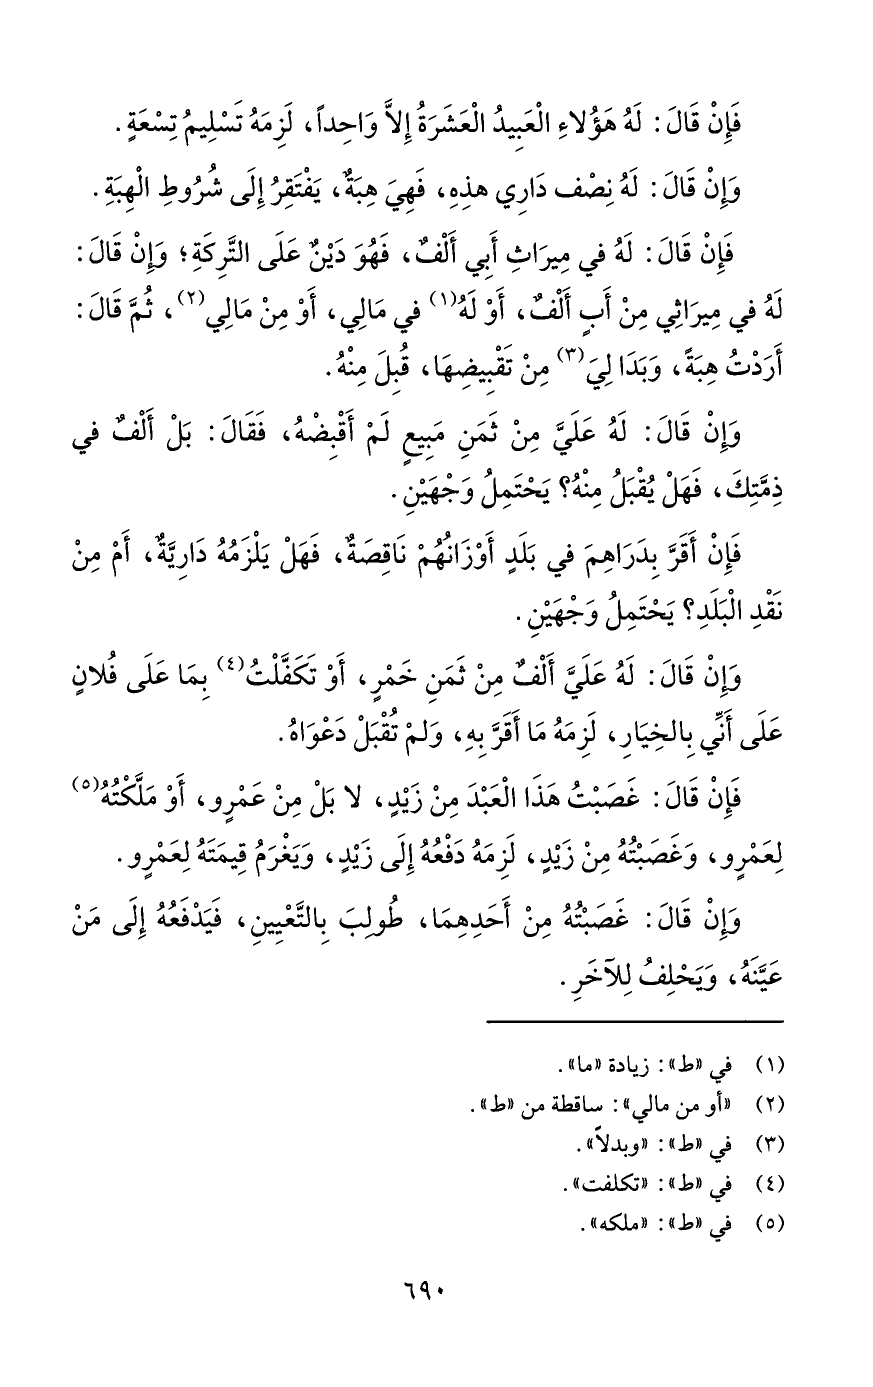 فَإِنْ قَالَ: لَهُ هَؤُلاءِ الْعَبِيدُ الْعَشَرَةُ إِلاَّ وَاحِداً، لَزِمَهُ تَسْلِيمُ تِسْعَةٍ.
وَإِنْ قَالَ: لَهُ نِصْف دَارِي هذِهِ، فَهِيَ هِبَةٌ، يَفْتَقِرُ إِلَى شُرُوطِ الْهِبَةِ.
فَإِنْ قَالَ: لَهُ في مِيرَاثِ أَبي أَلْفٌ، فَهُوَ دَيْنٌ عَلَى التَّرِكَةِ؛ وَإِنْ قَالَ:
لَهُ في مِيرَاثِي مِنْ أَبٍ أَلْفٌ، أَوْ لَهُ(١) في مَالِي، أَوْ مِنْ مَالِي(٢)، ثُمَّ قَالَ:
أَرَدْتُ هِبَةً، وَبَدَا لِيَ(٣) مِنْ تَقْبِيضِهَا، قُبِلَ مِنْهُ.
وَإِنْ قَالَ: لَهُ عَلَيَّ مِنْ ثَمَنِ مَبِيعٍ لَمْ أَقْبِضْهُ، فَقَالَ: بَلْ أَلْفٌ في
ذِمَّتِكَ، فَهَلْ يُقْبَلُ مِنْهُ؟ يَحْتَمِلُ وَجْهَيْنِ.
فَإِنْ أَقَرَّ بِدَرَاهِمَ في بَلَدٍ أَوْزَانُهُمْ نَاقِصَةٌ، فَهَلْ يَلْزَمُهُ دَارِيَّةٌ، أَمْ مِنْ
نَقْدِ الْبَلَدِ؟ يَحْتَمِلُ وَجْهَيْنِ.
وَإِنْ قَالَ: لَهُ عَلَيَّ أَلْفٌ مِنْ ثَمَنِ خَمْرٍ، أَوْ تَكَفَّلْتُ(٤) بِمَا عَلَى فُلانٍ
عَلَى أَنِّي بِالخِيَارِ، لَزِمَهُ مَا أَقَرَّ بِهِ، وَلَمْ تُقْبَلْ دَعْوَاهُ.
فَإِنْ قَالَ: غَصَبْتُ هَذَا الْعَبْدَ مِنْ زَيْدٍ، لا بَلْ مِنْ عَمْرٍو، أَوْ مَلَّكْتُهُ(٥)
لِعَمْرٍو، وَغَصَبْتُهُ مِنْ زَيْدٍ، لَزِمَهُ دَفْعُهُ إِلَى زَيْدٍ، وَيَغْرَمُ قِيمَتَهُ لِعَمْرٍو.
وَإِنْ قَالَ: غَصَبْتُهُ مِنْ أَحَدِهِمَا، طُولِبَ بِالتَّعْيِينِ، فَيَدْفَعُهُ إِلَى مَنْ
عَيَّنَهُ، وَيَحْلِفُ لِلآخَرِ.
(١) في «ط»: زيادة «ما».
(٢) «أو من مالي»: ساقطة من «ط».
(٣) في «ط»: «وبدلاً».
(٤) في «ط»: «تكلفت».
(٥) في «ط»: «ملكه».
٦٩٠